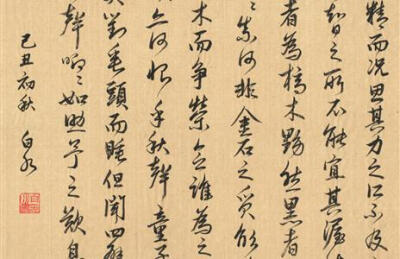 精而况思其力之所不及
智之所不能宜其渥
者為槁木黟然黑者
奈何非金石之質欲
木而争榮念誰為之
亦何恨乎秋聲童子
莫對垂頭而睡但聞四壁
聲唧〻如助予之歎息
己丑初秋 白水